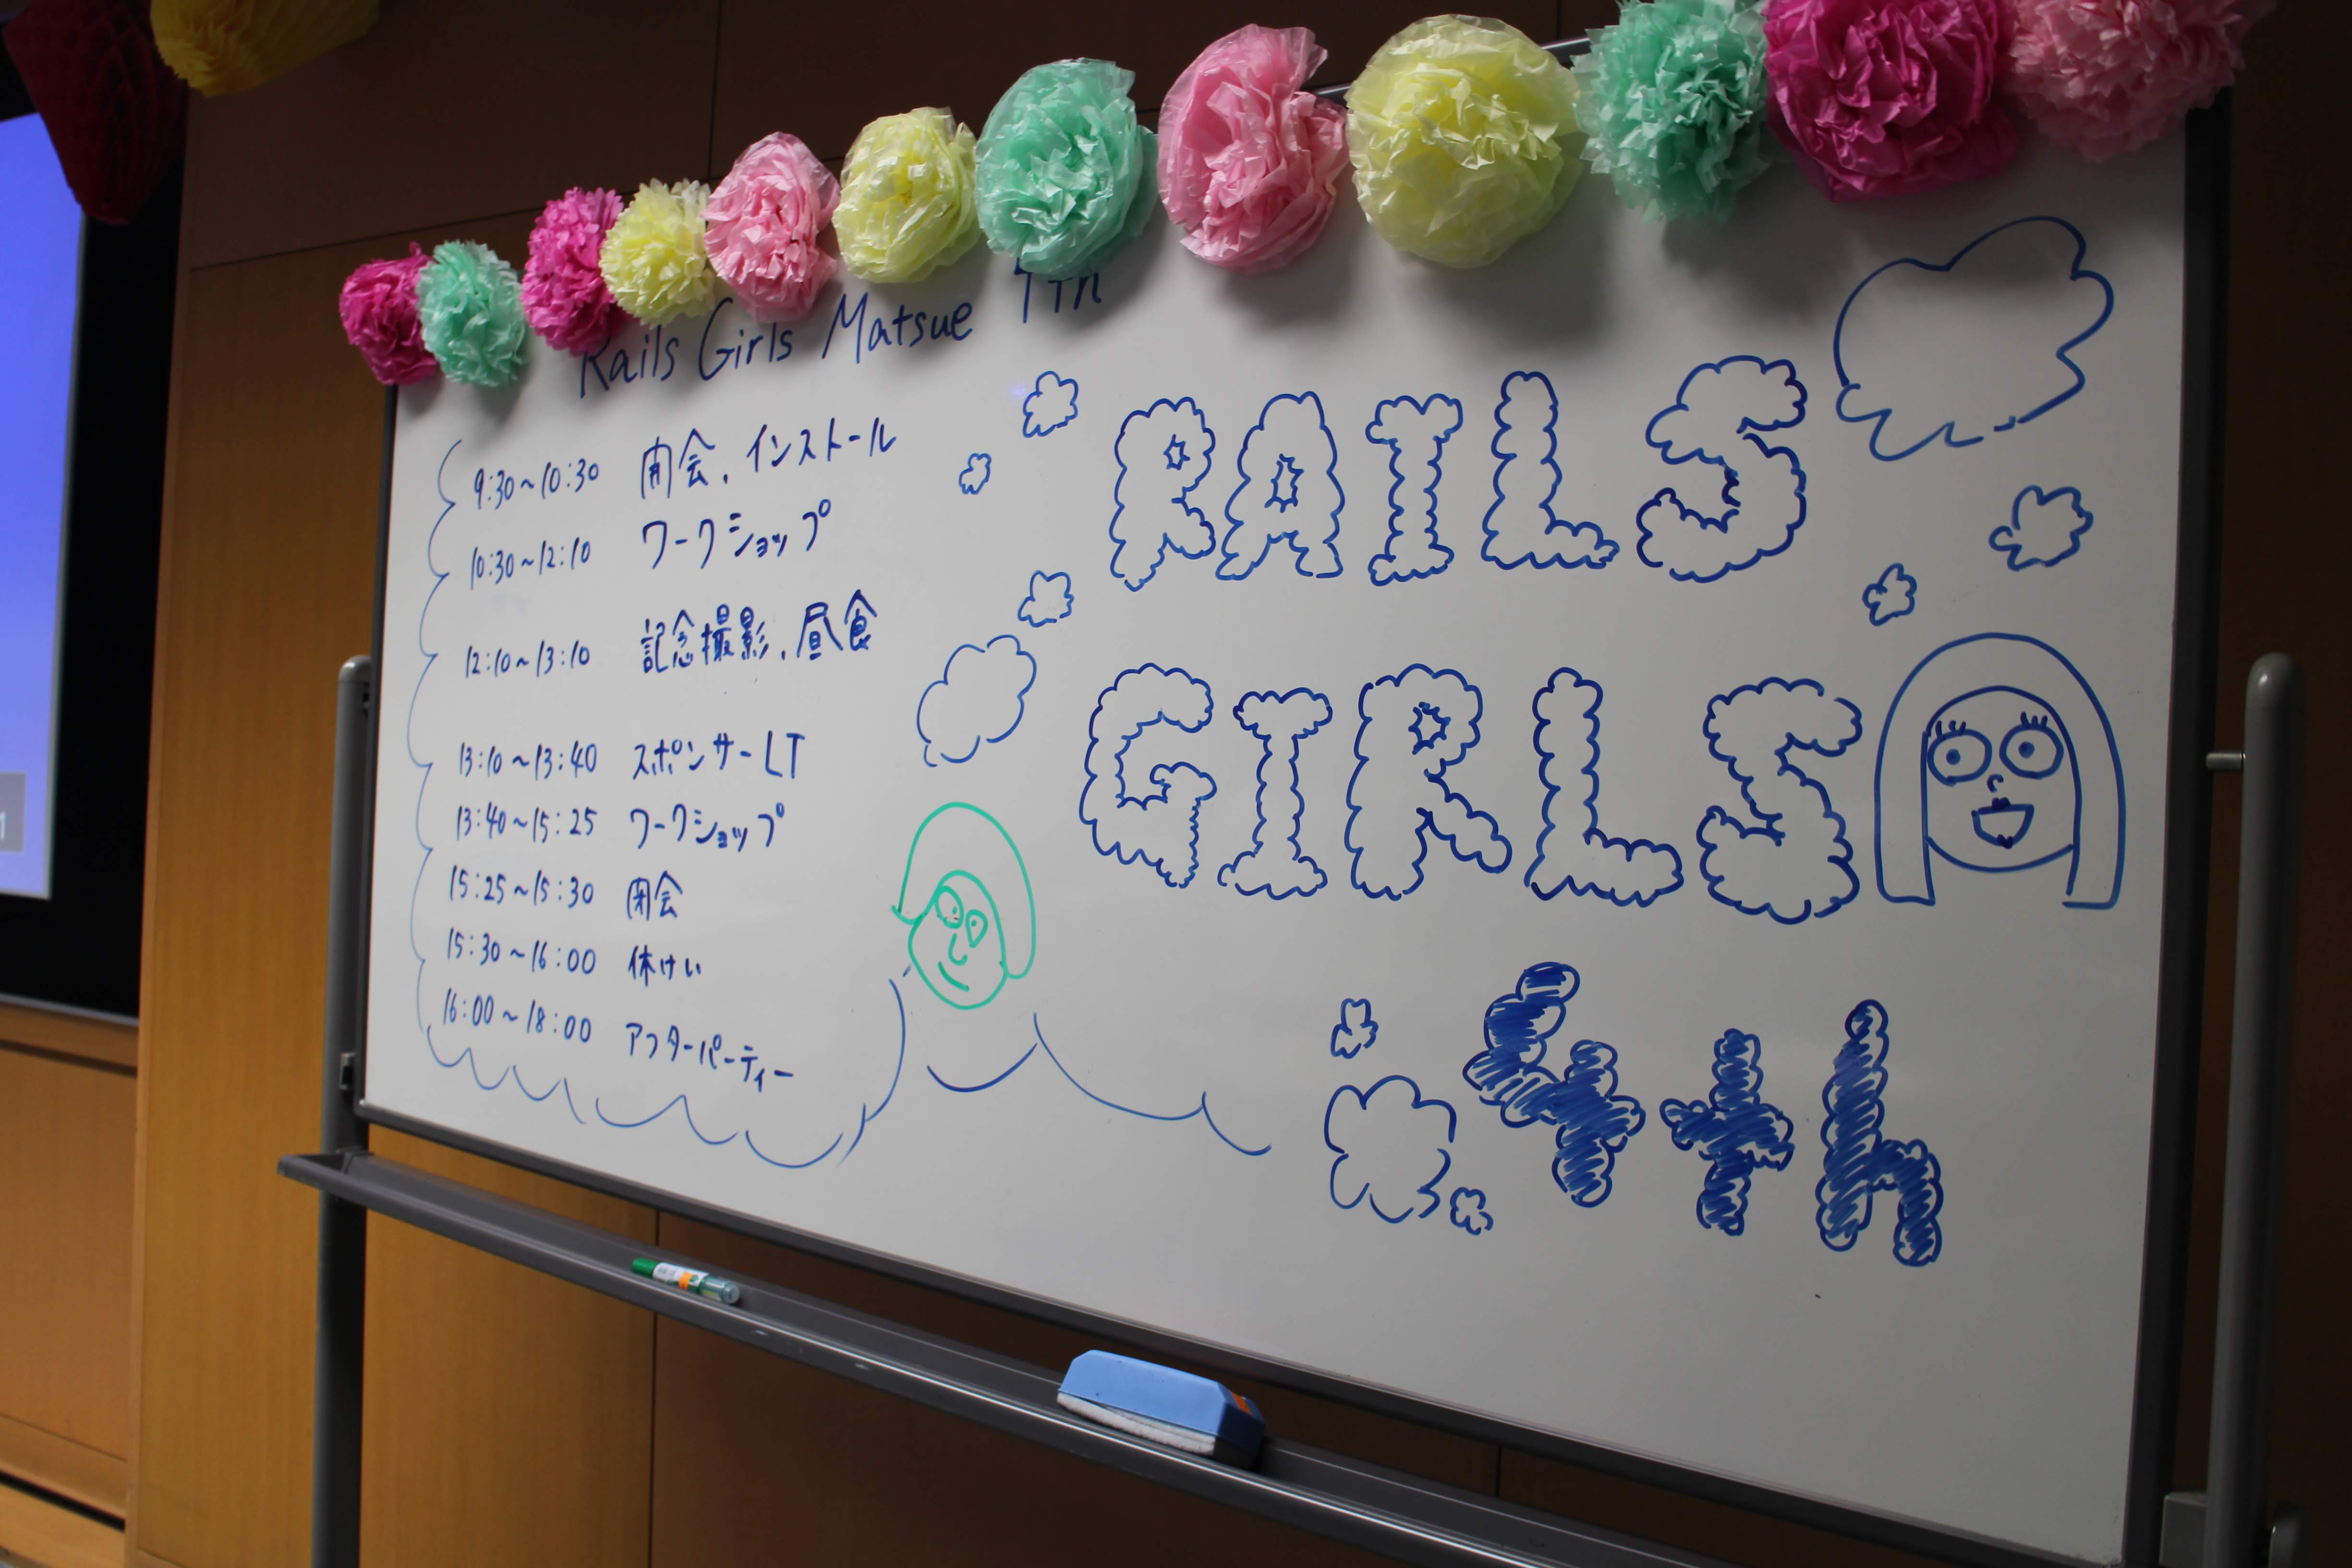 Rails Girls Matsue 4th
9:30~10:30 開会、インストール
10:30~12:10 ワークショップ
12:10~13:10 記念撮影、昼食
13:10~13:40 スポンサーLT
13:40~15:25 ワークショップ
15:25~15:30 閉会
15:30~16:00 休けい
16:00~18:00 アフターパーティー
RAILS
GIRLS
4th